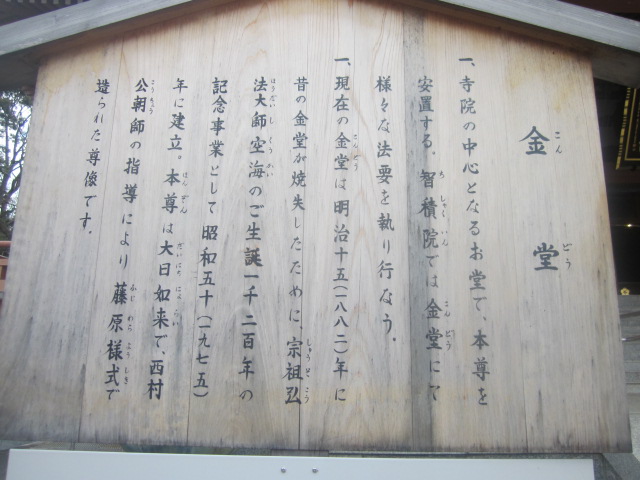 金堂
一、寺院の中心となるお堂で、本尊を
安置する。智積院では金堂にて
様々な法要を執り行なう。
一、現在の金堂は明治十五(一八八二)年に
昔の金堂が焼失したために、宗祖弘
法大師空海のご生誕一千二百年の
記念事業として昭和五十(一九七五)
年に建立。本尊は大日如来で、西村
公朝師の指導により藤原様式で
造られた尊像です。